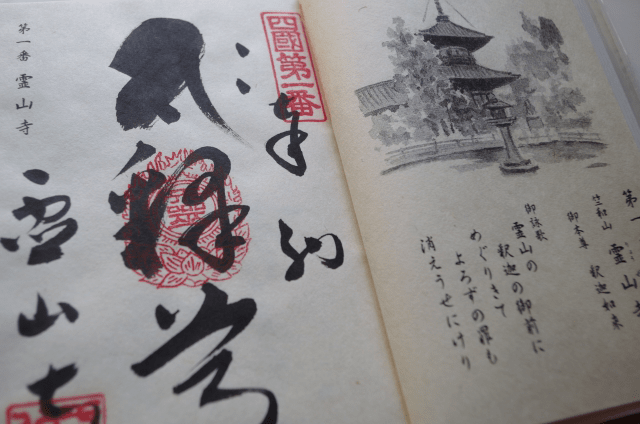 第一 霊山寺
竺和山
御本尊 釈迦如来
御詠歌
霊山の
釈迦の御前に
めぐりきて
よろずの罪も
消えうせにけり
四國第一番
奉納
釋
霊山寺
第一番 霊山寺